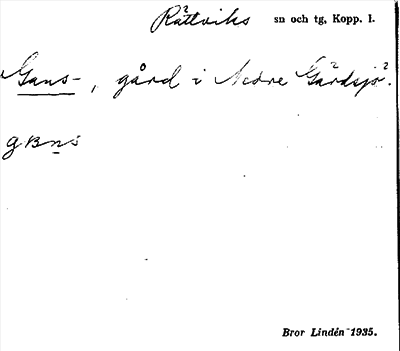 Rättviks sn och tg, Kopp. l.
Gans-, gård i Nedre Gärdsjö.
Bror Lindén 1935.